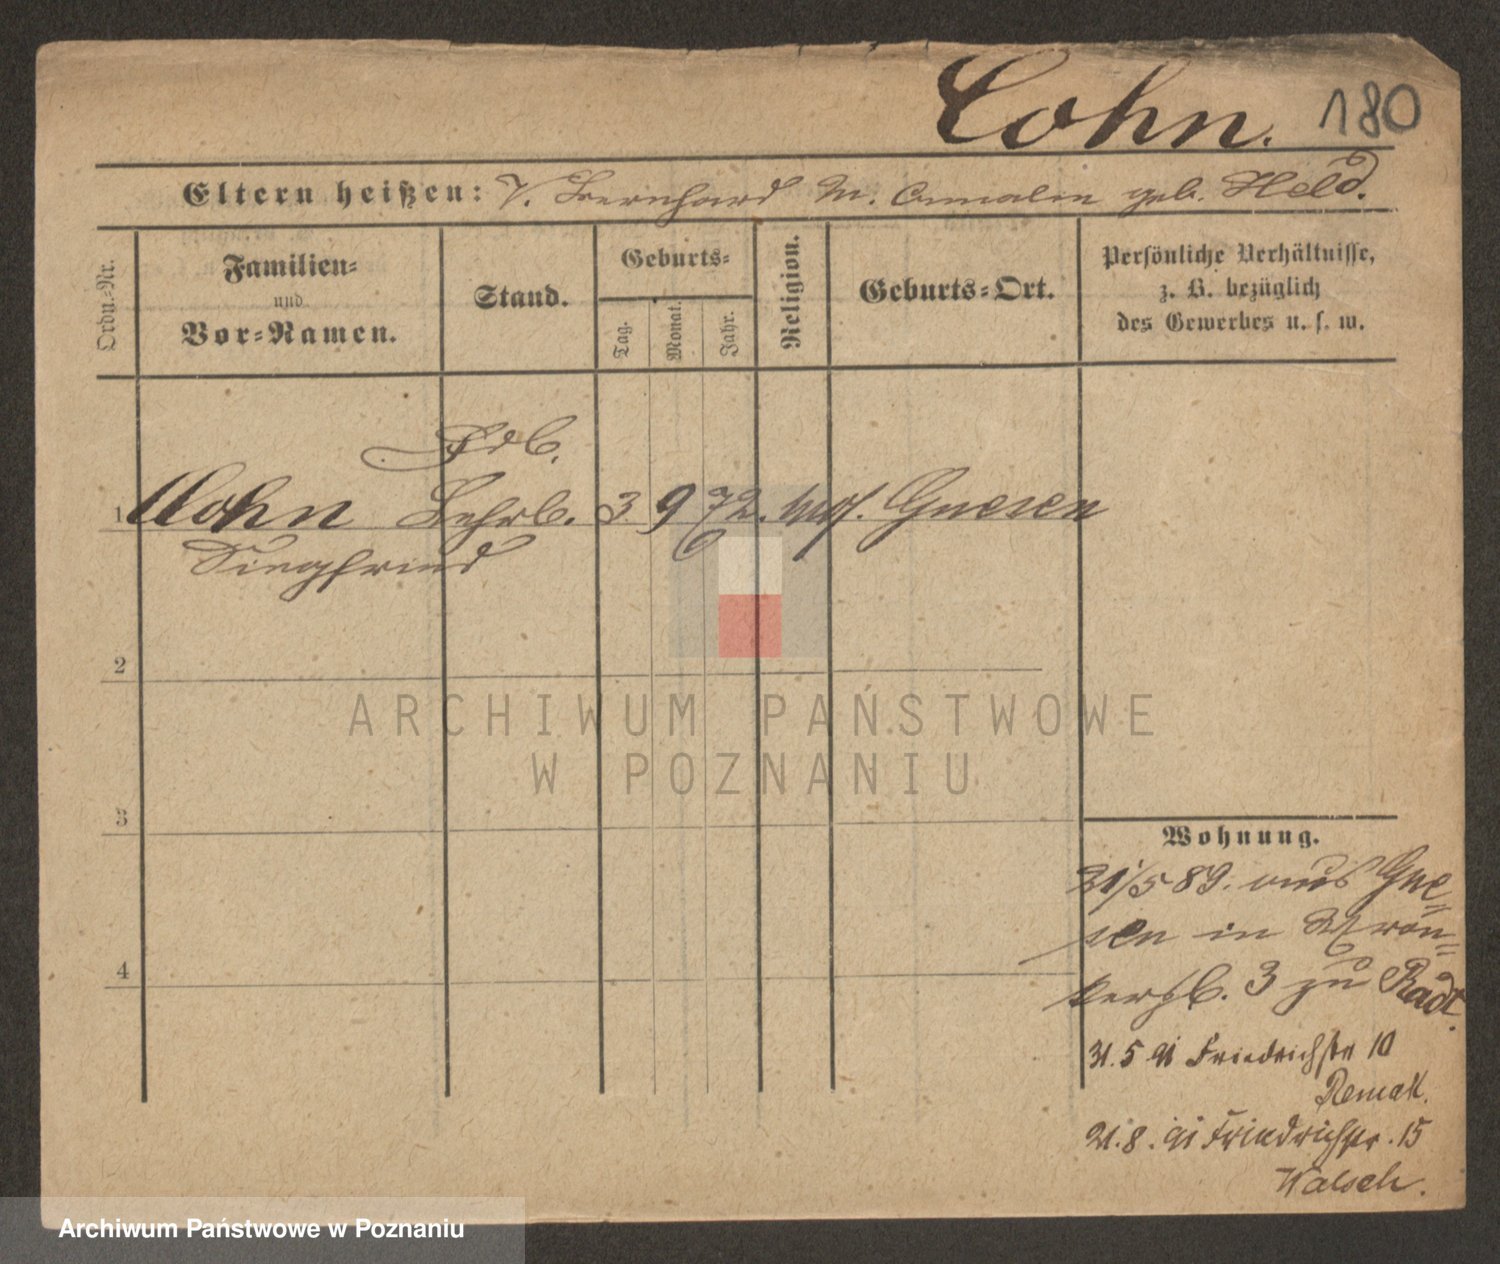 Cohn. 180
Eltern heißen: V. Bernhard M. Amalie geb. Held.
Ordn.-Nr.
Familien-
und
Vor-Namen.
Stand.
Geburts-
Tag.
Monat.
Jahr.
Religion.
Geburts-Ort.
Persönliche Verhältnisse,
z. B. bezüglich
des Gewerbes u. s. w.
1 Cohn Lehrl. 3 9 72. mos. Gnesen
Siegfried
2
3
4
Wohnung.
21/5 89. aus Gne-
sen in
3 zu Radt.
31.5 91 Friedrichstr 10
Remak.
21.8.91 Friedrichstr. 15
Walsch.
ARCHIWUM PAŃSTWOWE
W POZNANIU
Archiwum Państwowe w Poznaniu